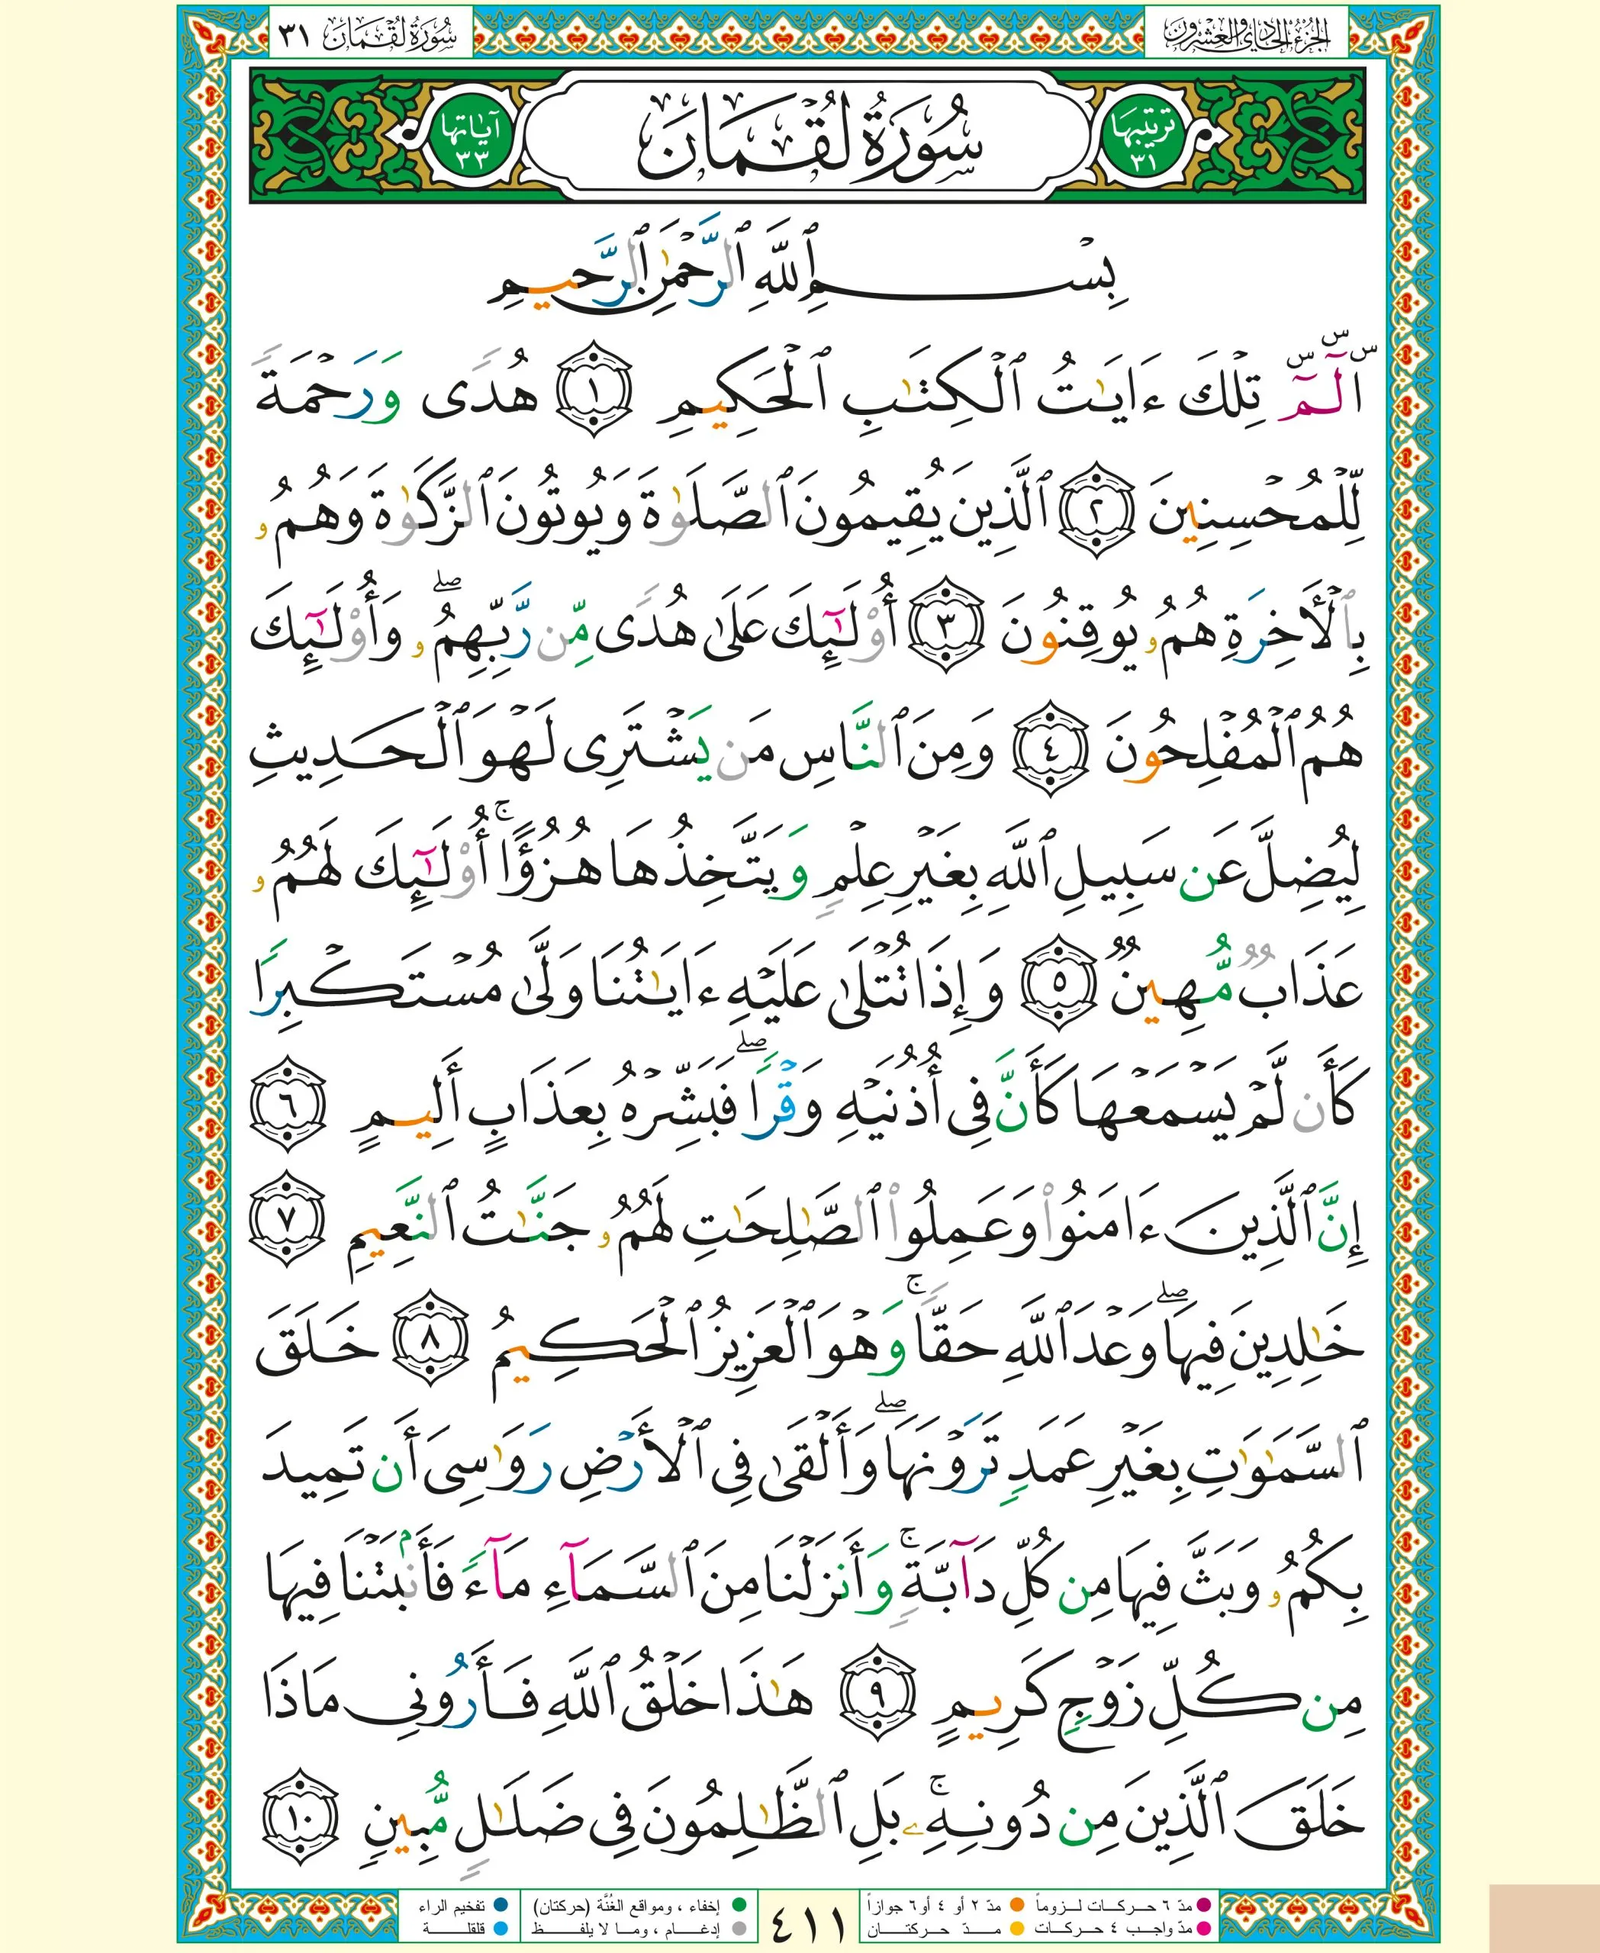 الجزء الحادي والعشرون
سُورَةُ لُقْمَان ٣١
ترتيبها ٣١
سُورَةُ لُقْمَانَ
آياتها ٣٣
بِسْمِ ٱللَّهِ ٱلرَّحْمَٰنِ ٱلرَّحِيمِ
الٓمٓ تِلْكَ ءَايَٰتُ ٱلْكِتَٰبِ ٱلْحَكِيمِ ١ هُدًى وَرَحْمَةً
لِّلْمُحْسِنِينَ ٢ ٱلَّذِينَ يُقِيمُونَ ٱلصَّلَوٰةَ وَيُوتُونَ ٱلزَّكَوٰةَ وَهُمُۥ
بِٱلْأَخِرَةِ هُمُۥ يُوقِنُونَ ٣ أُوْلَٰٓئِكَ عَلَىٰ هُدًى مِّن رَّبِّهِمُۥۖ وَأُوْلَٰٓئِكَ
هُمُ ٱلْمُفْلِحُونَ ٤ وَمِنَ ٱلنَّاسِ مَن يَشْتَرِى لَهْوَ ٱلْحَدِيثِ
لِيُضِلَّ عَن سَبِيلِ ٱللَّهِ بِغَيْرِ عِلْمٍ وَيَتَّخِذُهَا هُزُؤًاۚ أُوْلَٰٓئِكَ لَهُمُۥ
عَذَابٌ مُّهِينٌ ٥ وَإِذَا تُتْلَىٰ عَلَيْهِ ءَايَٰتُنَا وَلَّىٰ مُسْتَكْبِرًا
كَأَن لَّمْ يَسْمَعْهَا كَأَنَّ فِى أُذُنَيْهِ وَقْرًاۖ فَبَشِّرْهُ بِعَذَابٍ أَلِيمٍ ٦
إِنَّ ٱلَّذِينَ ءَامَنُوا۟ وَعَمِلُوا۟ ٱلصَّٰلِحَٰتِ لَهُمُۥ جَنَّٰتُ ٱلنَّعِيمِ ٧
خَٰلِدِينَ فِيهَاۖ وَعْدَ ٱللَّهِ حَقًّاۚ وَهْوَ ٱلْعَزِيزُ ٱلْحَكِيمُ ٨ خَلَقَ
ٱلسَّمَٰوَٰتِ بِغَيْرِ عَمَدٍ تَرَوْنَهَاۖ وَأَلْقَىٰ فِى ٱلْأَرْضِ رَوَٰسِىَ أَن تَمِيدَ
بِكُمُۥ وَبَثَّ فِيهَا مِن كُلِّ دَآبَّةٍۚ وَأَنزَلْنَا مِنَ ٱلسَّمَآءِ مَآءً فَأَنۢبَتْنَا فِيهَا
مِن كُلِّ زَوْجٍ كَرِيمٍ ٩ هَٰذَا خَلْقُ ٱللَّهِ فَأَرُونِى مَاذَا
خَلَقَ ٱلَّذِينَ مِن دُونِهِۦۚ بَلِ ٱلظَّٰلِمُونَ فِى ضَلَٰلٍ مُّبِينٍ ١٠
مدّ ٦ حركات لزوماً
مدّ ٢ أو ٤ أو ٦ جوازاً
مدّ واجب ٤ حركات
مدّ حركتان
٤١١
إخفاء ، ومواقع الغُنَّة (حركتان)
إدغام ، وما لا يلفظ
تفخيم الراء
قلقلة